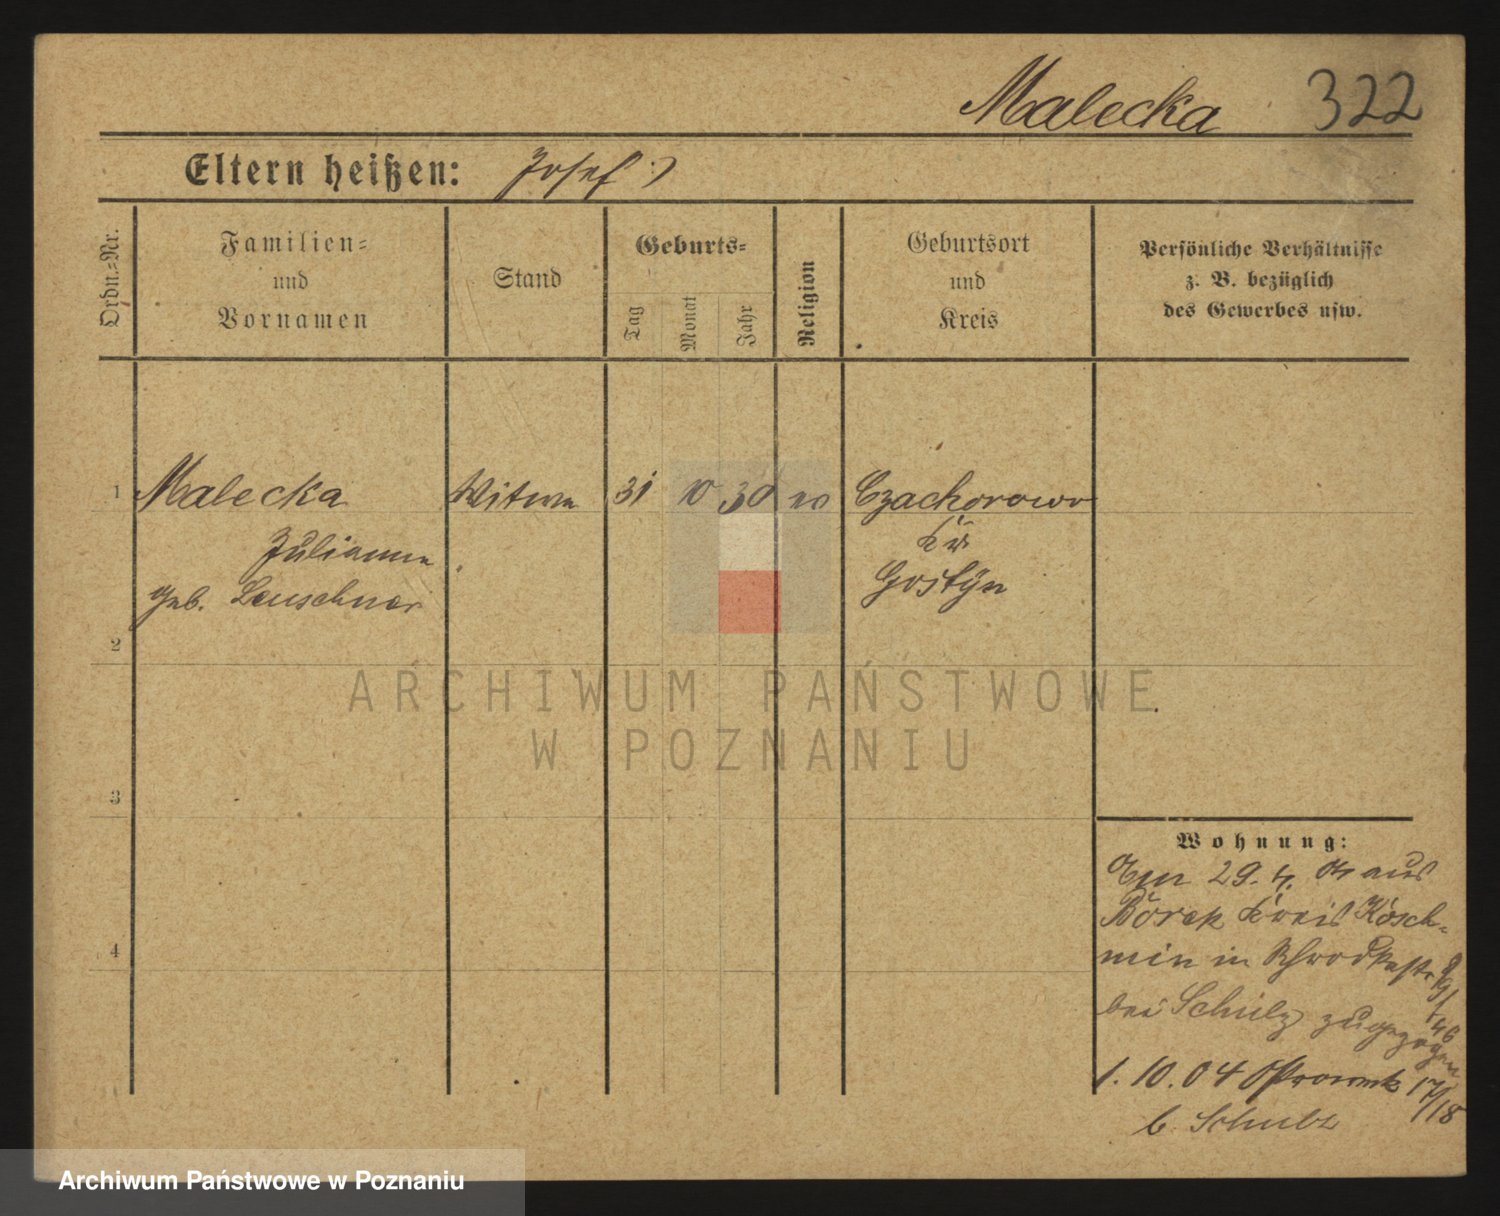 Malecka 322
Eltern heißen: Josef
Ordn.-Nr.
Familien-
und
Vornamen
Stand
Geburts-
Tag
Monat
Jahr
Religion
Geburtsort
und
Kreis
Persönliche Verhältnisse
z. B. bezüglich
des Gewerbes usw.
1 Malecka Witwe 31 10 30 Czachorowo
Kr
Julianna
Gostÿn
geb. Leuschner
2
3
4
Wohnung:
Am 29. 4. 04 aus
Borek Kreis Kosch-
min in
bei Schulz zugezogen
1. 10. 04 17/18
b. Schulz
ARCHIWUM PAŃSTWOWE
W POZNANIU
Archiwum Państwowe w Poznaniu